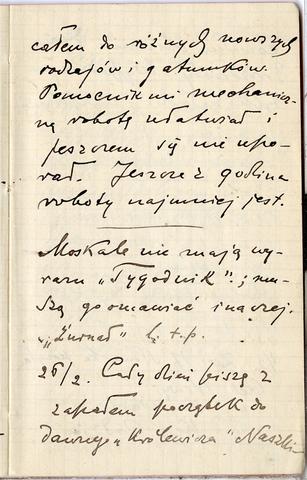 całem do różnych nowszych
rodzajów i gatunków.
Pomocnik mi mechanicz-
ną robotę ułatwiał i
jeszcze się nie upo-
rał. Jeszcze z godzina
roboty najmniej jest.
Moskale nie mają wy-
razu „Tygodnik"; mu-
szą go omawiać inaczej.
„Żurnał" i t.p.
26/2. Cały dzień piszę z
zapałem początek do
dawnego „Królewicza"